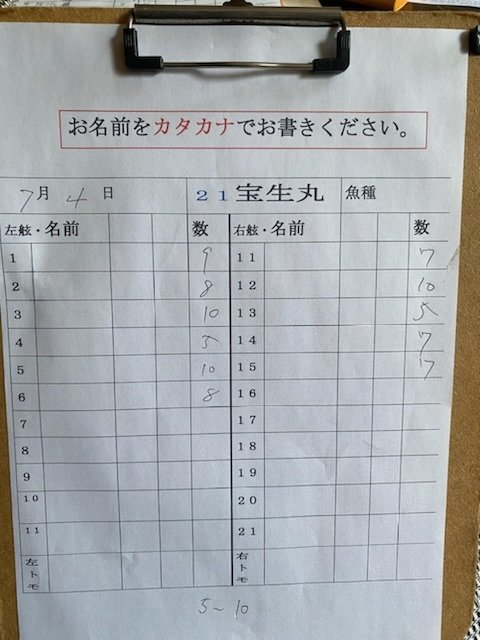 お名前をカタカナでお書きください。
7月 4日 21宝生丸 魚種
左舷・名前 数 右舷・名前 数
1 9 11 7
2 8 12 10
3 10 13 5
4 5 14 7
5 10 15 7
6 8 16
7 17
8 18
9 19
10 20
11 21
左トモ 右トモ
5~10